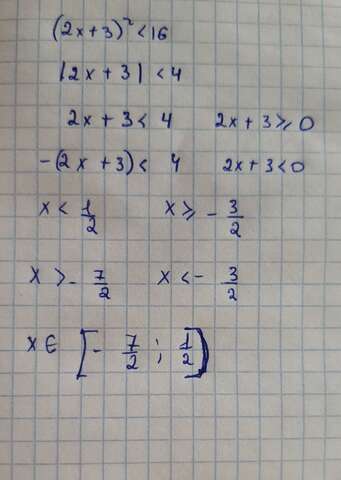 (2x+3)² < 16
|2x + 3| < 4
2x + 3 < 4 2x + 3 ⩾ 0
-(2x + 3) < 4 2x + 3 < 0
x < 1/2 x ⩾ - 3/2
x > - 7/2 x < - 3/2
x ∈ [- 7/2 ; 1/2)